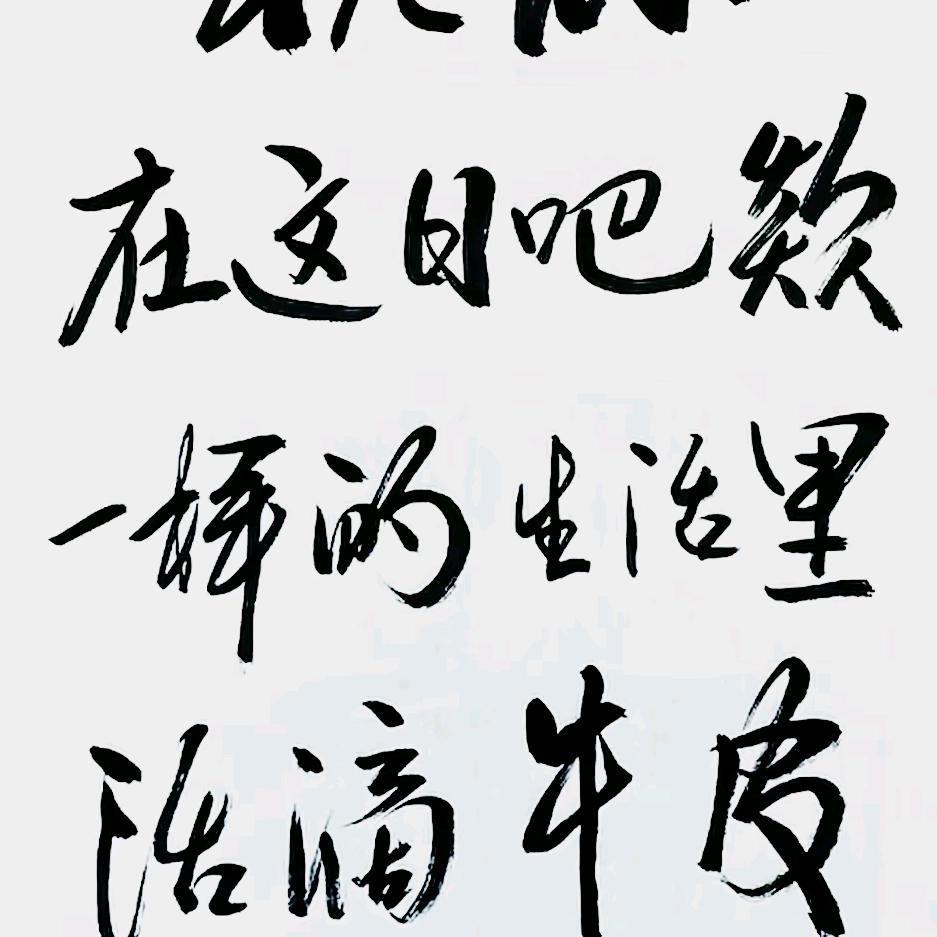 在这日吧欸
一样的生活里
活滴牛皮